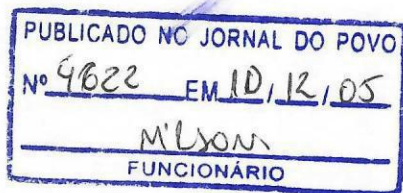 PUBLICADO NO JORNAL DO POVO
Nº 4622 EM 10, 12, 05
Milson
FUNCIONÁRIO